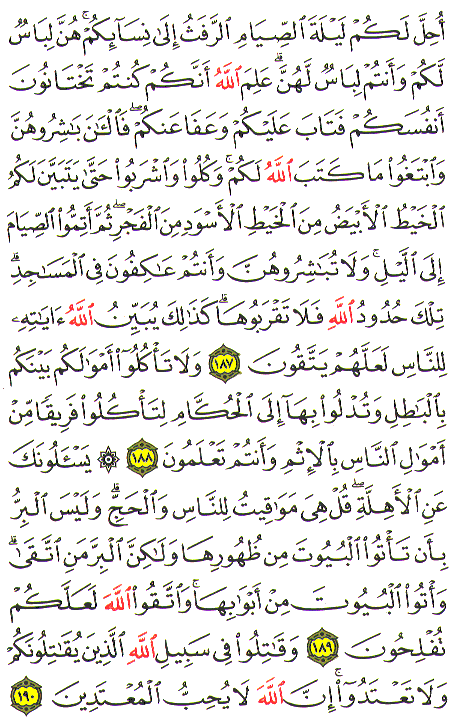 أُحِلَّ لَكُمْ لَيْلَةَ ٱلصِّيَامِ ٱلرَّفَثُ إِلَىٰ نِسَآئِكُمْ ۚ هُنَّ لِبَاسٌ
لَّكُمْ وَأَنتُمْ لِبَاسٌ لَّهُنَّ ۗ عَلِمَ ٱللَّهُ أَنَّكُمْ كُنتُمْ تَخْتَانُونَ
أَنفُسَكُمْ فَتَابَ عَلَيْكُمْ وَعَفَا عَنكُمْ ۖ فَٱلْـَٰٔنَ بَـٰشِرُوهُنَّ
وَٱبْتَغُوا۟ مَا كَتَبَ ٱللَّهُ لَكُمْ ۚ وَكُلُوا۟ وَٱشْرَبُوا۟ حَتَّىٰ يَتَبَيَّنَ لَكُمُ
ٱلْخَيْطُ ٱلْأَبْيَضُ مِنَ ٱلْخَيْطِ ٱلْأَسْوَدِ مِنَ ٱلْفَجْرِ ۖ ثُمَّ أَتِمُّوا۟ ٱلصِّيَامَ
إِلَى ٱلَّيْلِ ۚ وَلَا تُبَـٰشِرُوهُنَّ وَأَنتُمْ عَـٰكِفُونَ فِى ٱلْمَسَـٰجِدِ ۗ
تِلْكَ حُدُودُ ٱللَّهِ فَلَا تَقْرَبُوهَا ۗ كَذَٰلِكَ يُبَيِّنُ ٱللَّهُ ءَايَـٰتِهِۦ
لِلنَّاسِ لَعَلَّهُمْ يَتَّقُونَ ١٨٧ وَلَا تَأْكُلُوٓا۟ أَمْوَٰلَكُم بَيْنَكُم
بِٱلْبَـٰطِلِ وَتُدْلُوا۟ بِهَآ إِلَى ٱلْحُكَّامِ لِتَأْكُلُوا۟ فَرِيقًا مِّنْ
أَمْوَٰلِ ٱلنَّاسِ بِٱلْإِثْمِ وَأَنتُمْ تَعْلَمُونَ ١٨٨ ۞ يَسْـَٔلُونَكَ
عَنِ ٱلْأَهِلَّةِ ۖ قُلْ هِىَ مَوَٰقِيتُ لِلنَّاسِ وَٱلْحَجِّ ۗ وَلَيْسَ ٱلْبِرُّ
بِأَن تَأْتُوا۟ ٱلْبُيُوتَ مِن ظُهُورِهَا وَلَـٰكِنَّ ٱلْبِرَّ مَنِ ٱتَّقَىٰ ۗ
وَأْتُوا۟ ٱلْبُيُوتَ مِنْ أَبْوَٰبِهَا ۚ وَٱتَّقُوا۟ ٱللَّهَ لَعَلَّكُمْ
تُفْلِحُونَ ١٨٩ وَقَـٰتِلُوا۟ فِى سَبِيلِ ٱللَّهِ ٱلَّذِينَ يُقَـٰتِلُونَكُمْ
وَلَا تَعْتَدُوٓا۟ ۚ إِنَّ ٱللَّهَ لَا يُحِبُّ ٱلْمُعْتَدِينَ ١٩٠